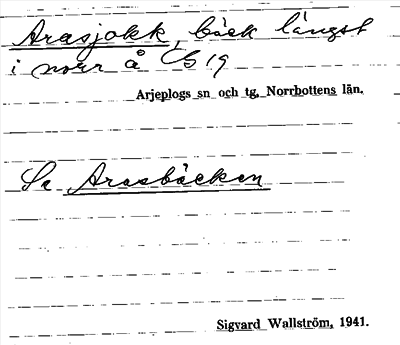 Arasjokk, bäck längst
i norr å CS 19
Arjeplogs sn och tg, Norrbottens län.
Se Arasbäcken
Sigvard Wallström, 1941.